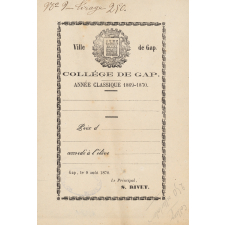 Ville de Gap.
COLLÉGE DE GAP.
ANNÉE CLASSIQUE 1869-1870.
Prix d
accordé à l'élève
Gap, le 8 août 1870
Le Principal,
S. RIVET.